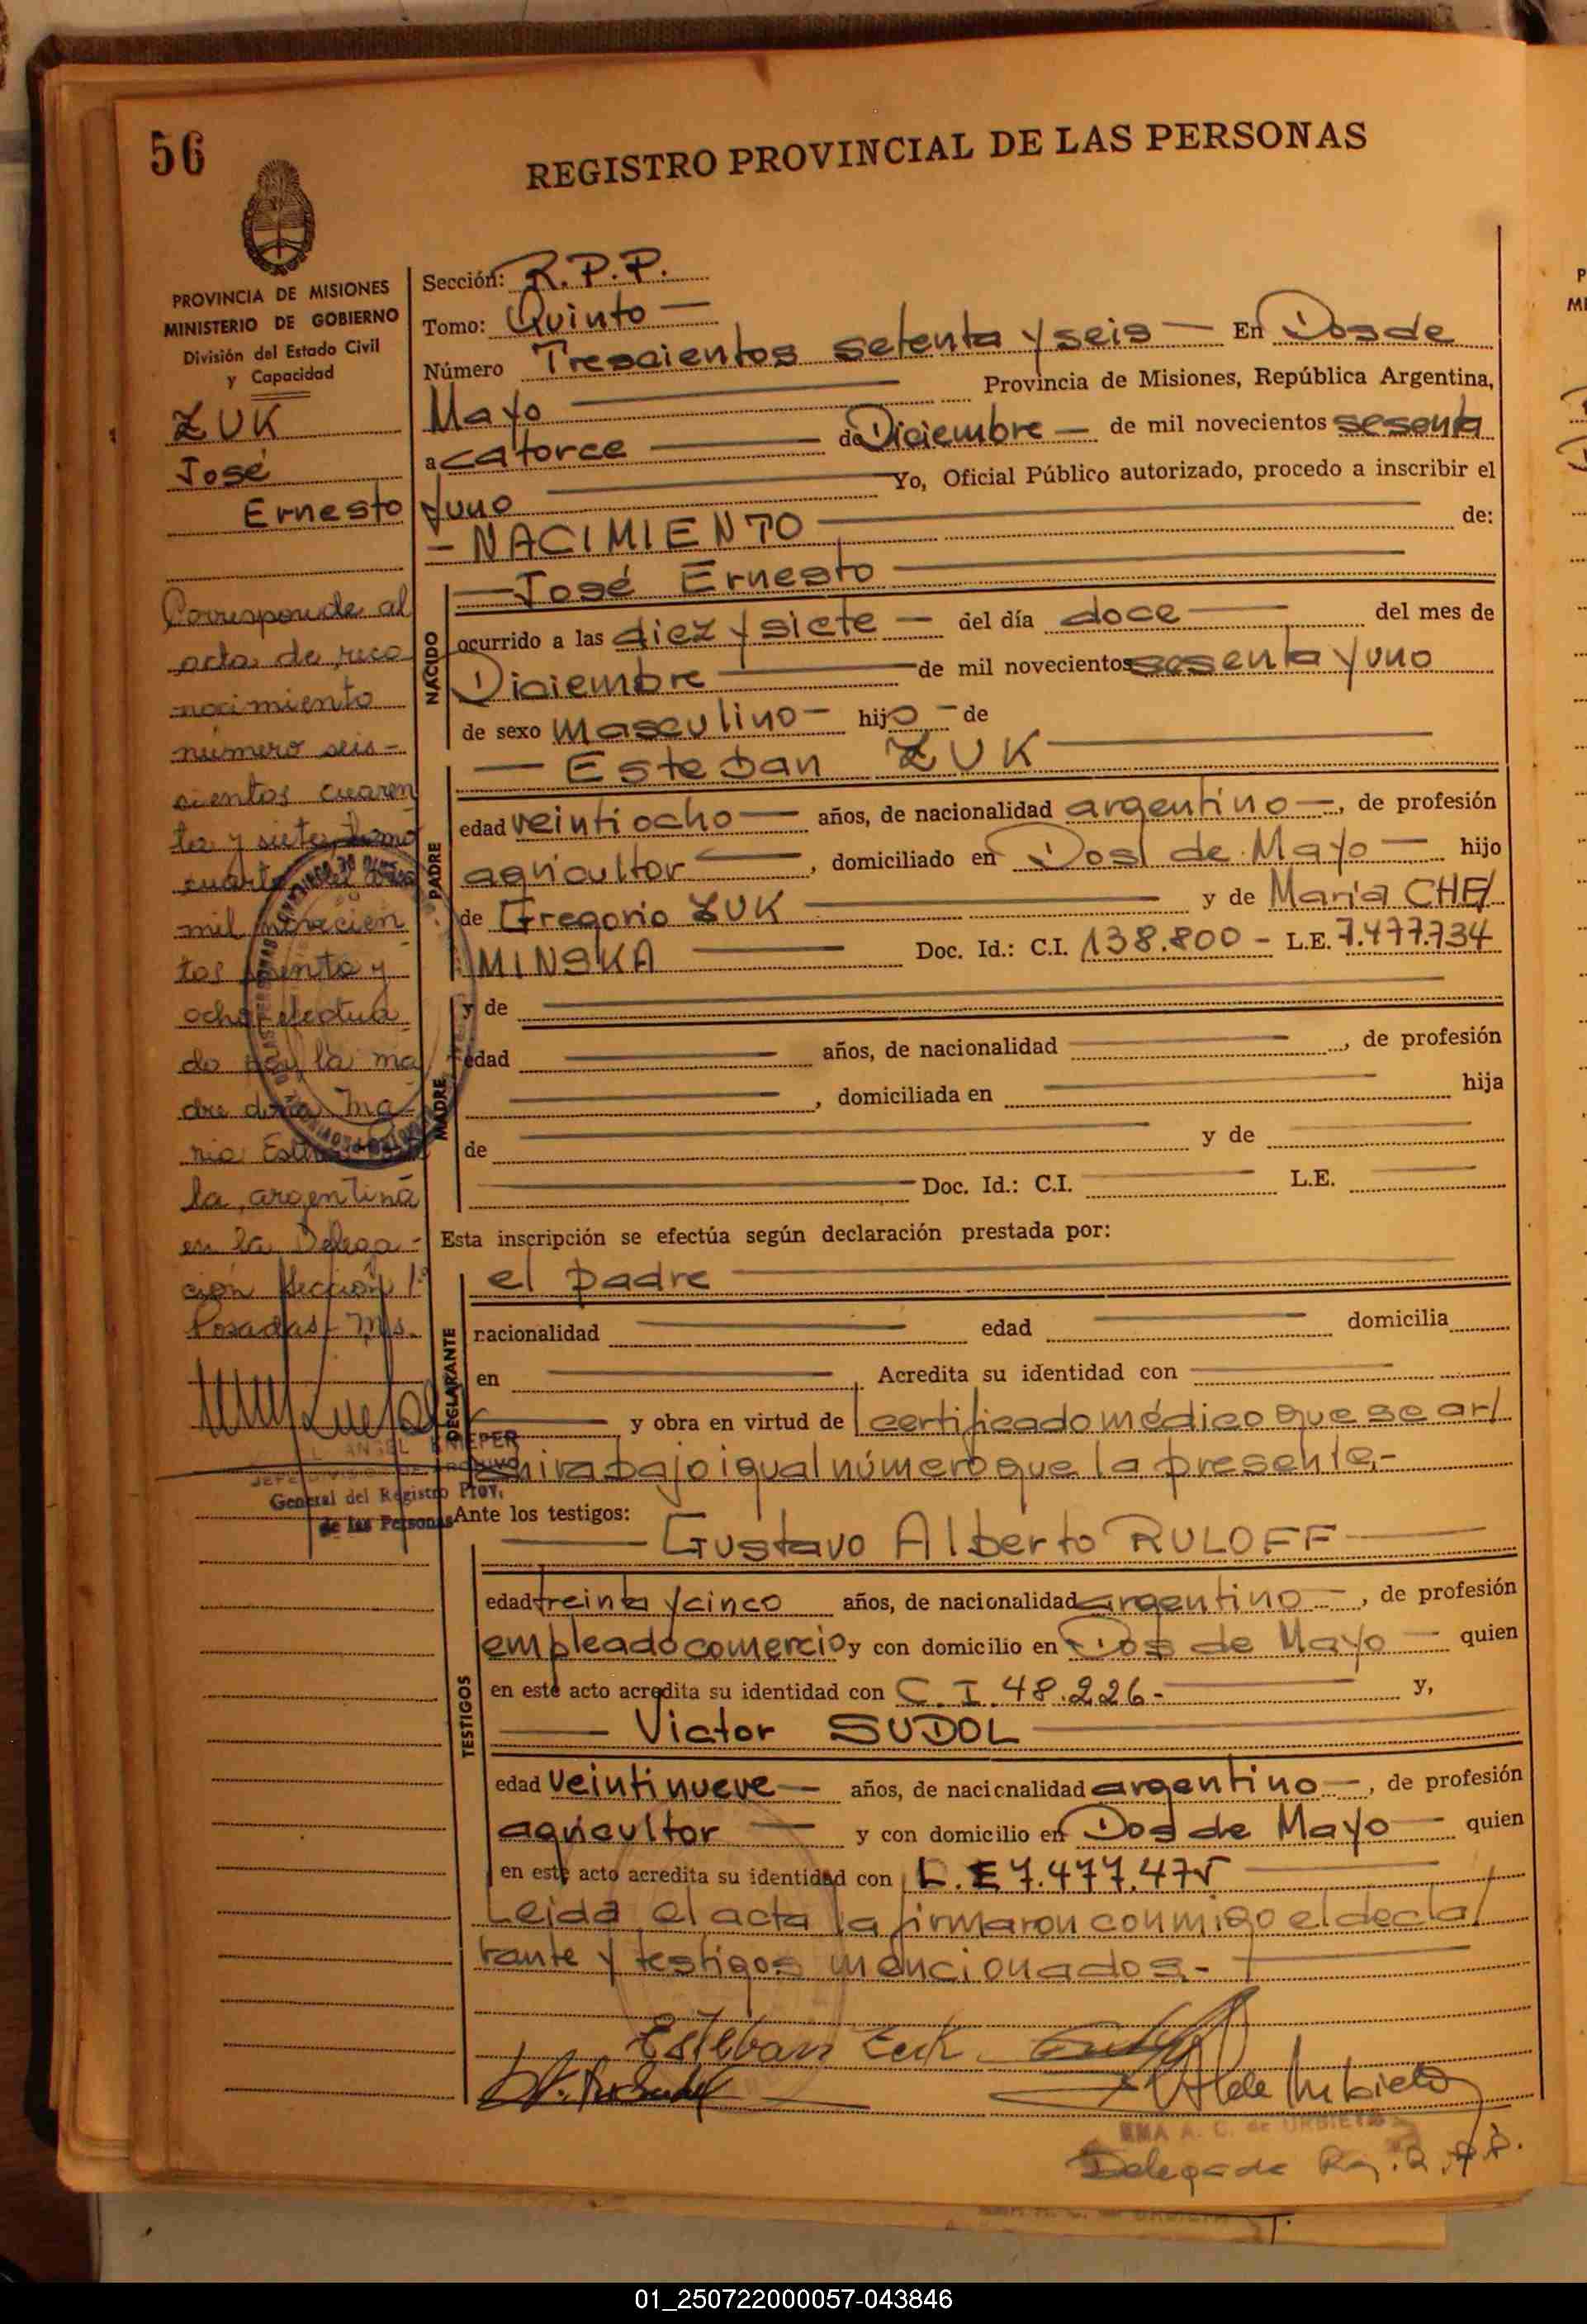 56
REGISTRO PROVINCIAL DE LAS PERSONAS
PROVINCIA DE MISIONES
MINISTERIO DE GOBIERNO
División del Estado Civil
y Capacidad
ZUK
José
Ernesto
Corresponde al
acta de reco
nocimiento
número seis-
cientos cuaren
ta y siete tomo
cuarto del año
mil novecien
tos sesenta y
ocho efectua
do por la ma
dre doña Ma-
ria
la, argentina
en la Delega-
ción Sección 1ª
Posadas Mis.
ANGEL KNIEPER
JEFE DIVISION DE ARCHIVO
General del Registro Prov.
de las Personas
Sección: R.P.P.
Tomo: Quinto
Número Trescientos setenta y seis En Dos de
Mayo Provincia de Misiones, República Argentina,
a catorce de Diciembre de mil novecientos sesenta
y uno Yo, Oficial Público autorizado, procedo a inscribir el
- NACIMIENTO de:
NACIDO
José Ernesto
ocurrido a las diez y siete del día doce del mes de
Diciembre de mil novecientos sesenta y uno
de sexo masculino hijo de
PADRE
Esteban ZUK
edad veintiocho años, de nacionalidad argentino, de profesión
agricultor, domiciliado en Dos de Mayo hijo
de Gregorio ZUK y de Maria CHE/
MINSKA Doc. Id.: C.I. 138.800 - L.E. 7.477.734
MADRE
y de
edad años, de nacionalidad , de profesión
, domiciliada en hija
de y de
Doc. Id.: C.I. L.E.
Esta inscripción se efectúa según declaración prestada por:
DECLARANTE
el padre
nacionalidad edad domicilia
en Acredita su identidad con
y obra en virtud de certificado médico que se ar/
chiva bajo igual número que la presente.-
Ante los testigos:
TESTIGOS
Gustavo Alberto RULOFF
edad treinta y cinco años, de nacionalidad argentino, de profesión
empleado comercio y con domicilio en Dos de Mayo quien
en este acto acredita su identidad con C.I. 48.226.- y,
Victor SUDOL
edad veintinueve años, de nacionalidad argentino, de profesión
agricultor y con domicilio en Dos de Mayo quien
en este acto acredita su identidad con L.E 7.477.475
Leida el acta la firmaron conmigo el decla/
rante y testigos mencionados.-
Esteban Zuk
A. C. de URBIETA
Delegada
01_250722000057-043846